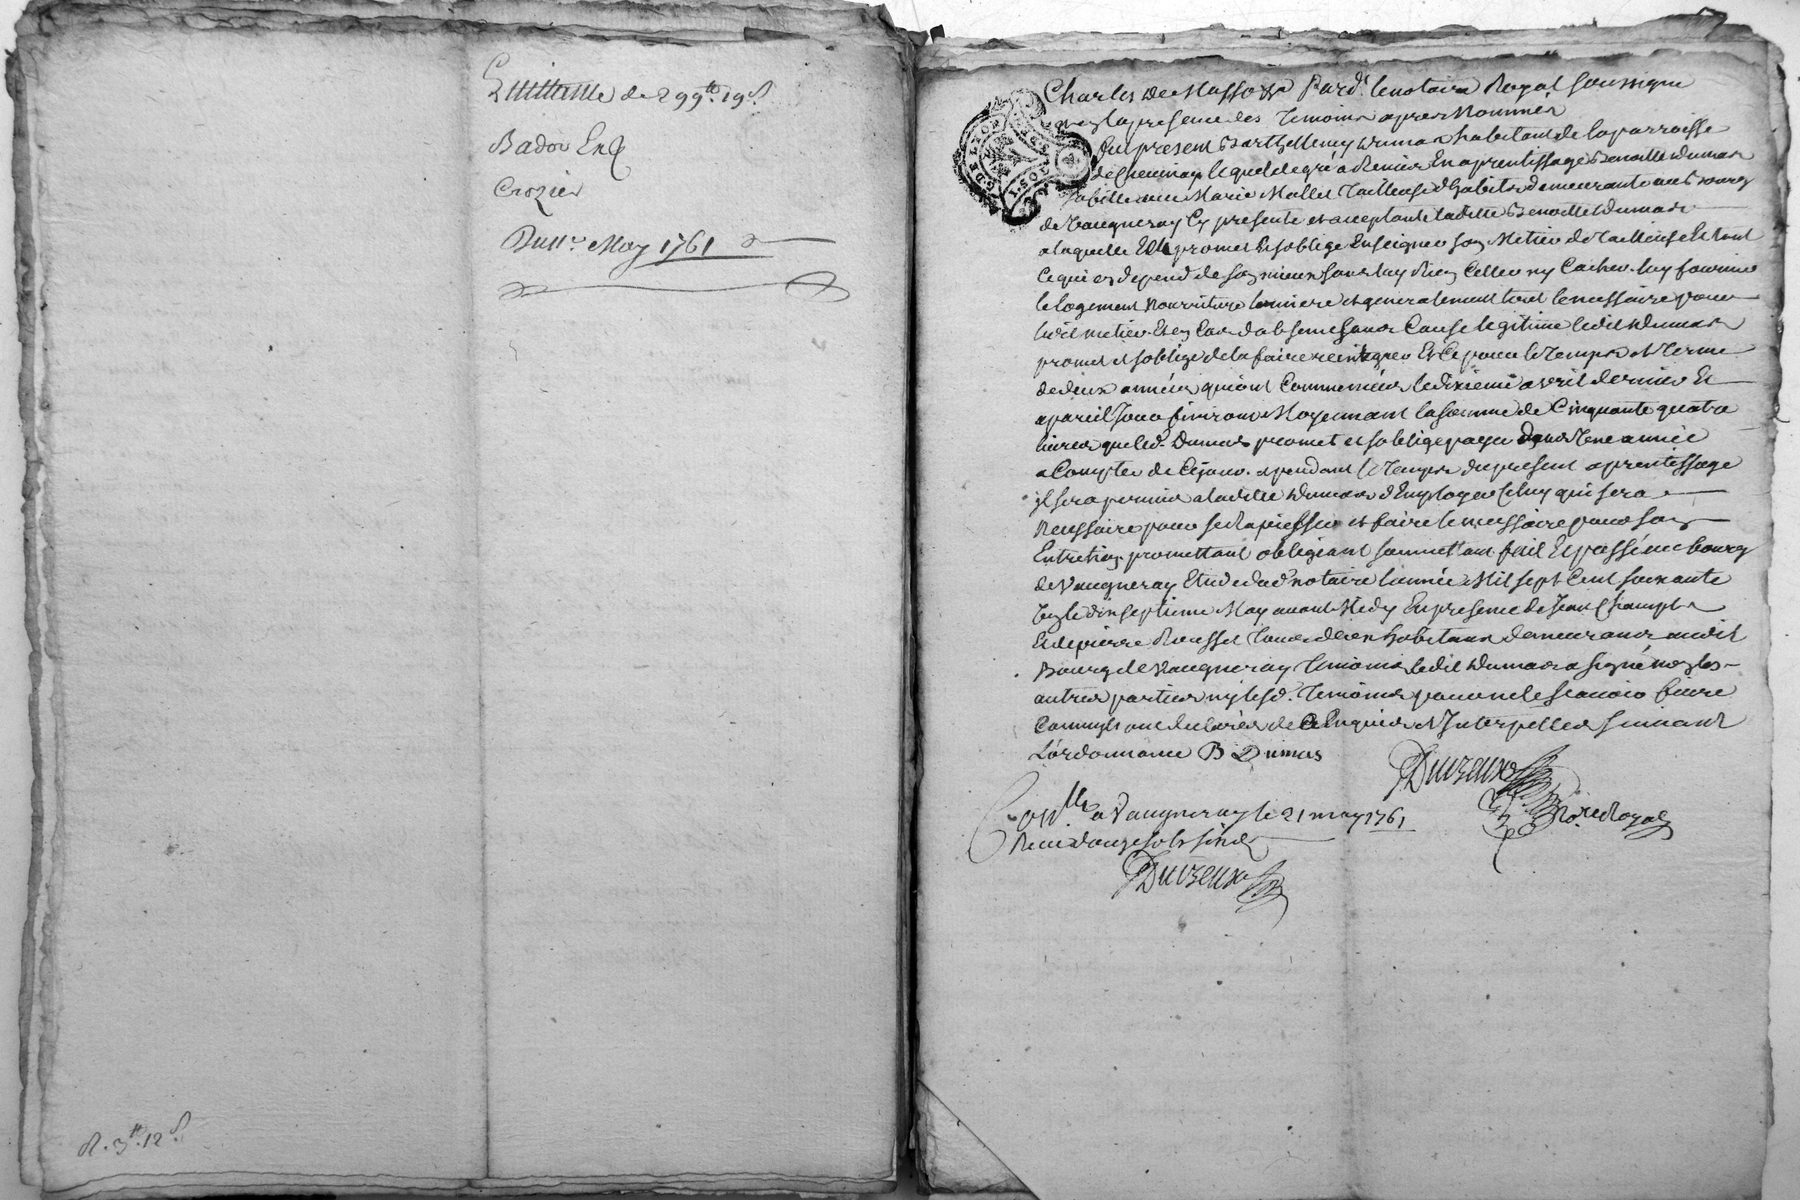 Quittance de 299ᵗᵗ 19ˢ
Bador Et
Crozier
Du 11e May 1761
R. 3ᵗᵗ 12ˢ
Pard.t le notaire Royal soussigné
en la presence des temoins apres nommés
Fut present Barthellemy Dumas habitant de la parroisse
lequel de gré a Remis En aprentissage Benoitte Dumas
sa fille a Marie Mallet Tailleuse d'habits demeurante au Bourg
de Vaugneray Cy presente et acceptante laditte Benoitte Dumas
a laquelle Elle promet Et soblige Enseigner son Metier de Tailleuse Et tout
ce qui en depend de son mieux sans luy Rien Celler ny Cacher luy fournir
le logement Nourriture lumiere et generalement tout le necessaire pour
ledit metier Et en Cas d'absence sans Cause legitime ledit Dumas
promet et soblige de la faire reintegrer Et Ce pour le Temps et Terme
de deux années qui ont Commencées le dixieme avril dernier Et
a pareil Jour finiront Moyennant la somme de Cinquante quatre
livres que led. Dumas promet et soblige payer dans Une année
a Compter de Ce jour. et pendant le Temps du present aprentissage
il sera permis a laditte Dumas d'Employer Celuy qui sera
Necessaire pour se Rapiesser et faire le necessaire pour son
Entretien promettant obligeant soumettant fait Et passé au bourg
de Vaugneray Etude dud. notaire l'année Mil sept Cent soixante
Un le dix septieme May avant Midy En presence de Jean
Et de pierre Rousset Tous deux habitans demeurans audit
Bourg de Vaugneray temoins ledit Dumas a signé non les
autres parties ny lesd. Temoins pour ne le scavoir faire
Comme ils ont declarés de Ce Enquis et Interpellés suivant
L'ordonnance B Dumas
Duizeux
No.re Royal
Con.lle a Vaugneray le 21 may 1761
Receu douze sols
Duizeux